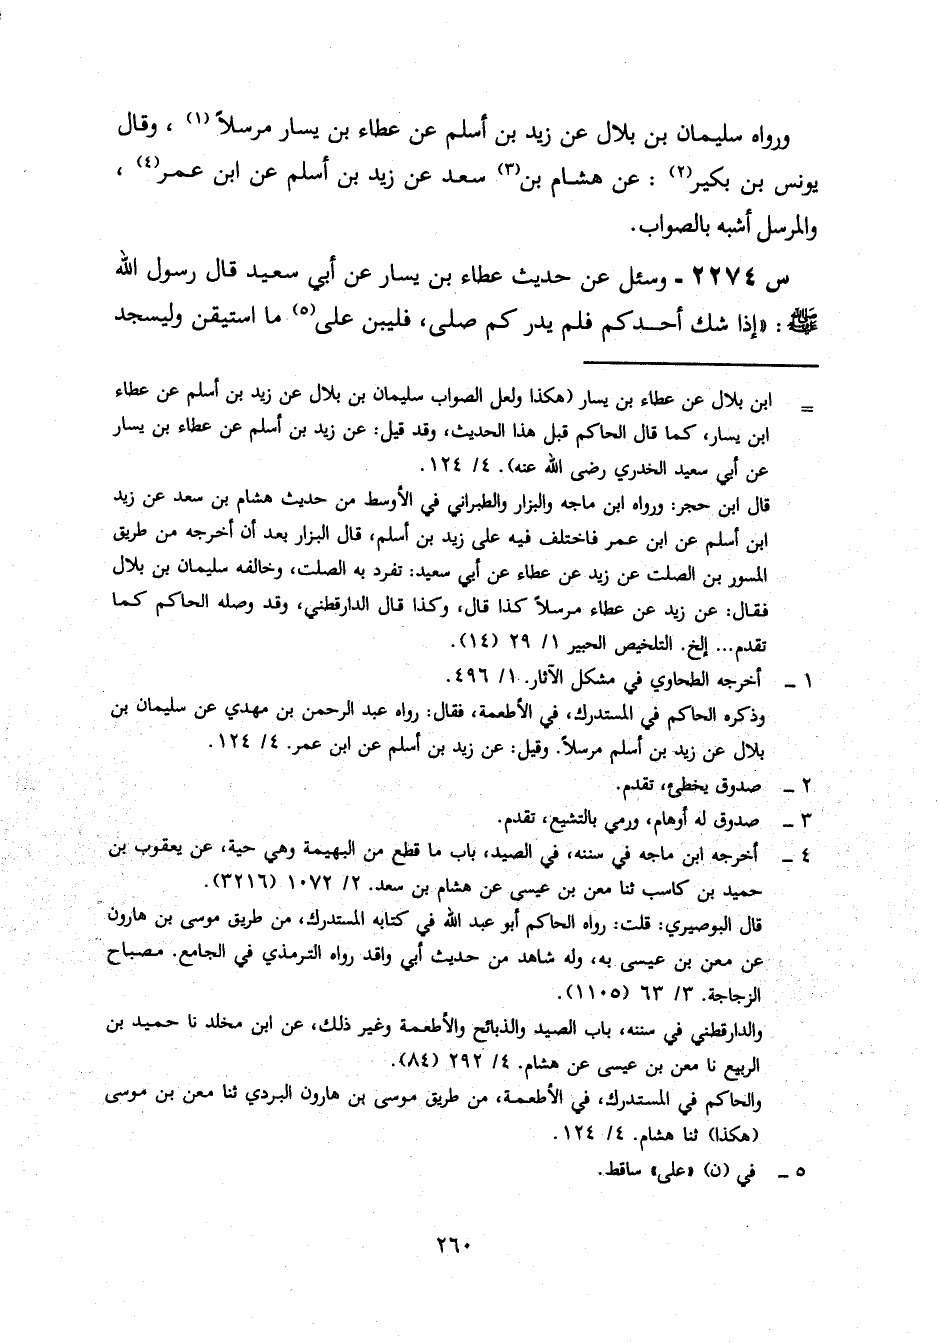 ورواه سليمان بن بلال عن زيد بن أسلم عن عطاء بن يسار مرسلاً (١) ، وقال
يونس بن بكير(٢) : عن هشام بن(٣) سعد عن زيد بن أسلم عن ابن عمر(٤) ،
والمرسل أشبه بالصواب.
س ٢٢٧٤ ـ وسئل عن حديث عطاء بن يسار عن أبي سعيد قال رسول الله
ﷺ : «إذا شك أحدكم فلم يدر كم صلى، فليبن على(٥) ما استيقن وليسجد
= ابن بلال عن عطاء بن يسار (هكذا ولعل الصواب سليمان بن بلال عن زيد بن أسلم عن عطاء
ابن يسار، كما قال الحاكم قبل هذا الحديث، وقد قيل: عن زيد بن أسلم عن عطاء بن يسار
عن أبي سعيد الخدري رضى الله عنه). ٤/ ١٢٤.
قال ابن حجر: ورواه ابن ماجه والبزار والطبراني في الأوسط من حديث هشام بن سعد عن زيد
ابن أسلم عن ابن عمر فاختلف فيه على زيد بن أسلم، قال البزار بعد أن أخرجه من طريق
المسور بن الصلت عن زيد عن عطاء عن أبي سعيد: تفرد به الصلت، وخالفه سليمان بن بلال
فقال: عن زيد عن عطاء مرسلاً كذا قال، وكذا قال الدارقطني، وقد وصله الحاكم كما
تقدم... إلخ. التلخيص الحبير ١/ ٢٩ (١٤).
١ ـ أخرجه الطحاوي في مشكل الآثار. ١/ ٤٩٦.
وذكره الحاكم في المستدرك، في الأطعمة، فقال: رواه عبد الرحمن بن مهدي عن سليمان بن
بلال عن زيد بن أسلم مرسلاً. وقيل: عن زيد بن أسلم عن ابن عمر. ٤/ ١٢٤.
٢ ـ صدوق يخطئ، تقدم.
٣ ـ صدوق له أوهام، ورمي بالتشيع، تقدم.
٤ ـ أخرجه ابن ماجه في سننه، في الصيد، باب ما قطع من البهيمة وهي حية، عن يعقوب بن
حميد بن كاسب ثنا معن بن عيسى عن هشام بن سعد. ٢/ ١٠٧٢ (٣٢١٦).
قال البوصيري: قلت: رواه الحاكم أبو عبد الله في كتابه المستدرك، من طريق موسى بن هارون
عن معن بن عيسى به، وله شاهد من حديث أبي واقد رواه الترمذي في الجامع. مصباح
الزجاجة. ٣/ ٦٣ (١١٠٥).
والدارقطني في سننه، باب الصيد والذبائح والأطعمة وغير ذلك، عن ابن مخلد نا حميد بن
الربيع نا معن بن عيسى عن هشام. ٤/ ٢٩٢ (٨٤).
والحاكم في المستدرك، في الأطعمة، من طريق موسى بن هارون البردي ثنا معن بن موسى
(هكذا) ثنا هشام. ٤/ ١٢٤.
٥ ـ في (ن) «على» ساقط.
٢٦٠